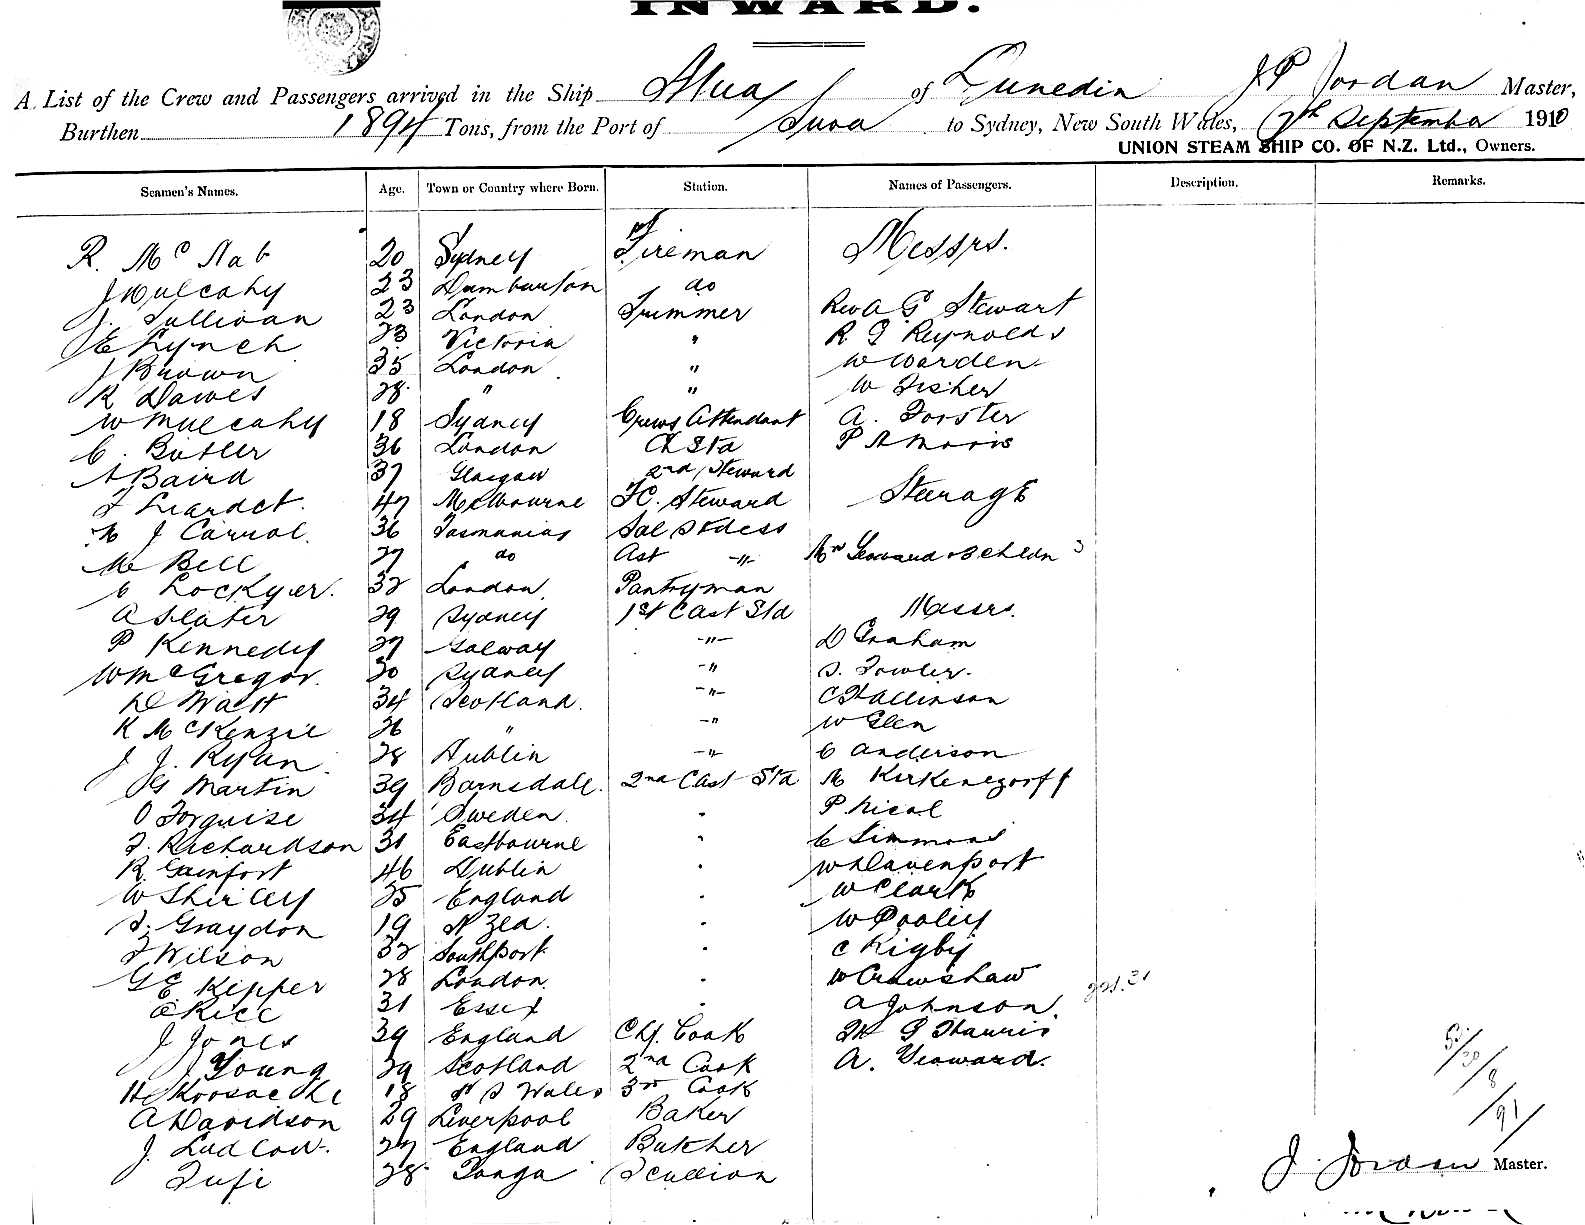 INWARD.
A List of the Crew and Passengers arrived in the Ship Atua of Dunedin J P Jordan Master,
Burthen 1894 Tons, from the Port of Suva to Sydney, New South Wales, 7th September 1910
UNION STEAM SHIP CO. OF N.Z. Ltd., Owners.
Seamen's Names. Age. Town or Country where Born. Station. Names of Passengers. Description. Remarks.
R. McNab 20 Sydney Fireman Messrs.
J Mulcahy 23 Dumbarton do
J. Sullivan 23 London Trimmer Rev A G Stewart
E Lynch 23 Victoria " R G Reynolds
J Brown 35 London " W Worden
R Dawes 28 " " W Fisher
W Mulcahy 18 Sydney Crews Attendant A. Forster
C. Butler 36 London Ch Std P A Morris
A Baird 37 Glasgow 2nd Steward
F Liardet. 47 Melbourne F.C. Steward Steerage
M J Carrol. 36 Tasmania Sal Stdess
M Bell 27 do Ast -"- Mrs Yeoward & 3 Childn 3
C Lockyer. 32 London. Pantryman
A Slater 29 Sydney 1st C Ast Std Messrs.
P Kennedy 27 Galway -"- D Graham
W McGregor. 30 Sydney -" S. Fowler.
D Watt 34 Scotland. -"- C Hallinson
K McKenzie 26 " -" W Glen
J J. Ryan 28 Dublin -"- C Anderson
G Martin 39 Barnsdale. 2nd C Ast Std M Kerkenezorff
O Torquise 34 Sweden. . P Nicol
F. Richardson 31 Eastbourne . C Simmons
R. Gainfort 46 Dublin . W Davenport
W Shirley 25 England . W Clark
S. Graydon 19 N Zea. . W Pooley
F Wilson 32 Southport . C Rigby
G E Kipper 28 London. . W Crawshaw
E Rice 31 Essex . A Johnson.
J Jones 39 England Chf. Cook
J Young 29 Scotland 2nd Cook A. Yeoward.
H 18 N S Wales 3rd Cook
A Davidson 29 Liverpool Baker
J. Ludlow. 27 England Butcher
Tufi 28 Tonga Scullion
J. Jordan Master.